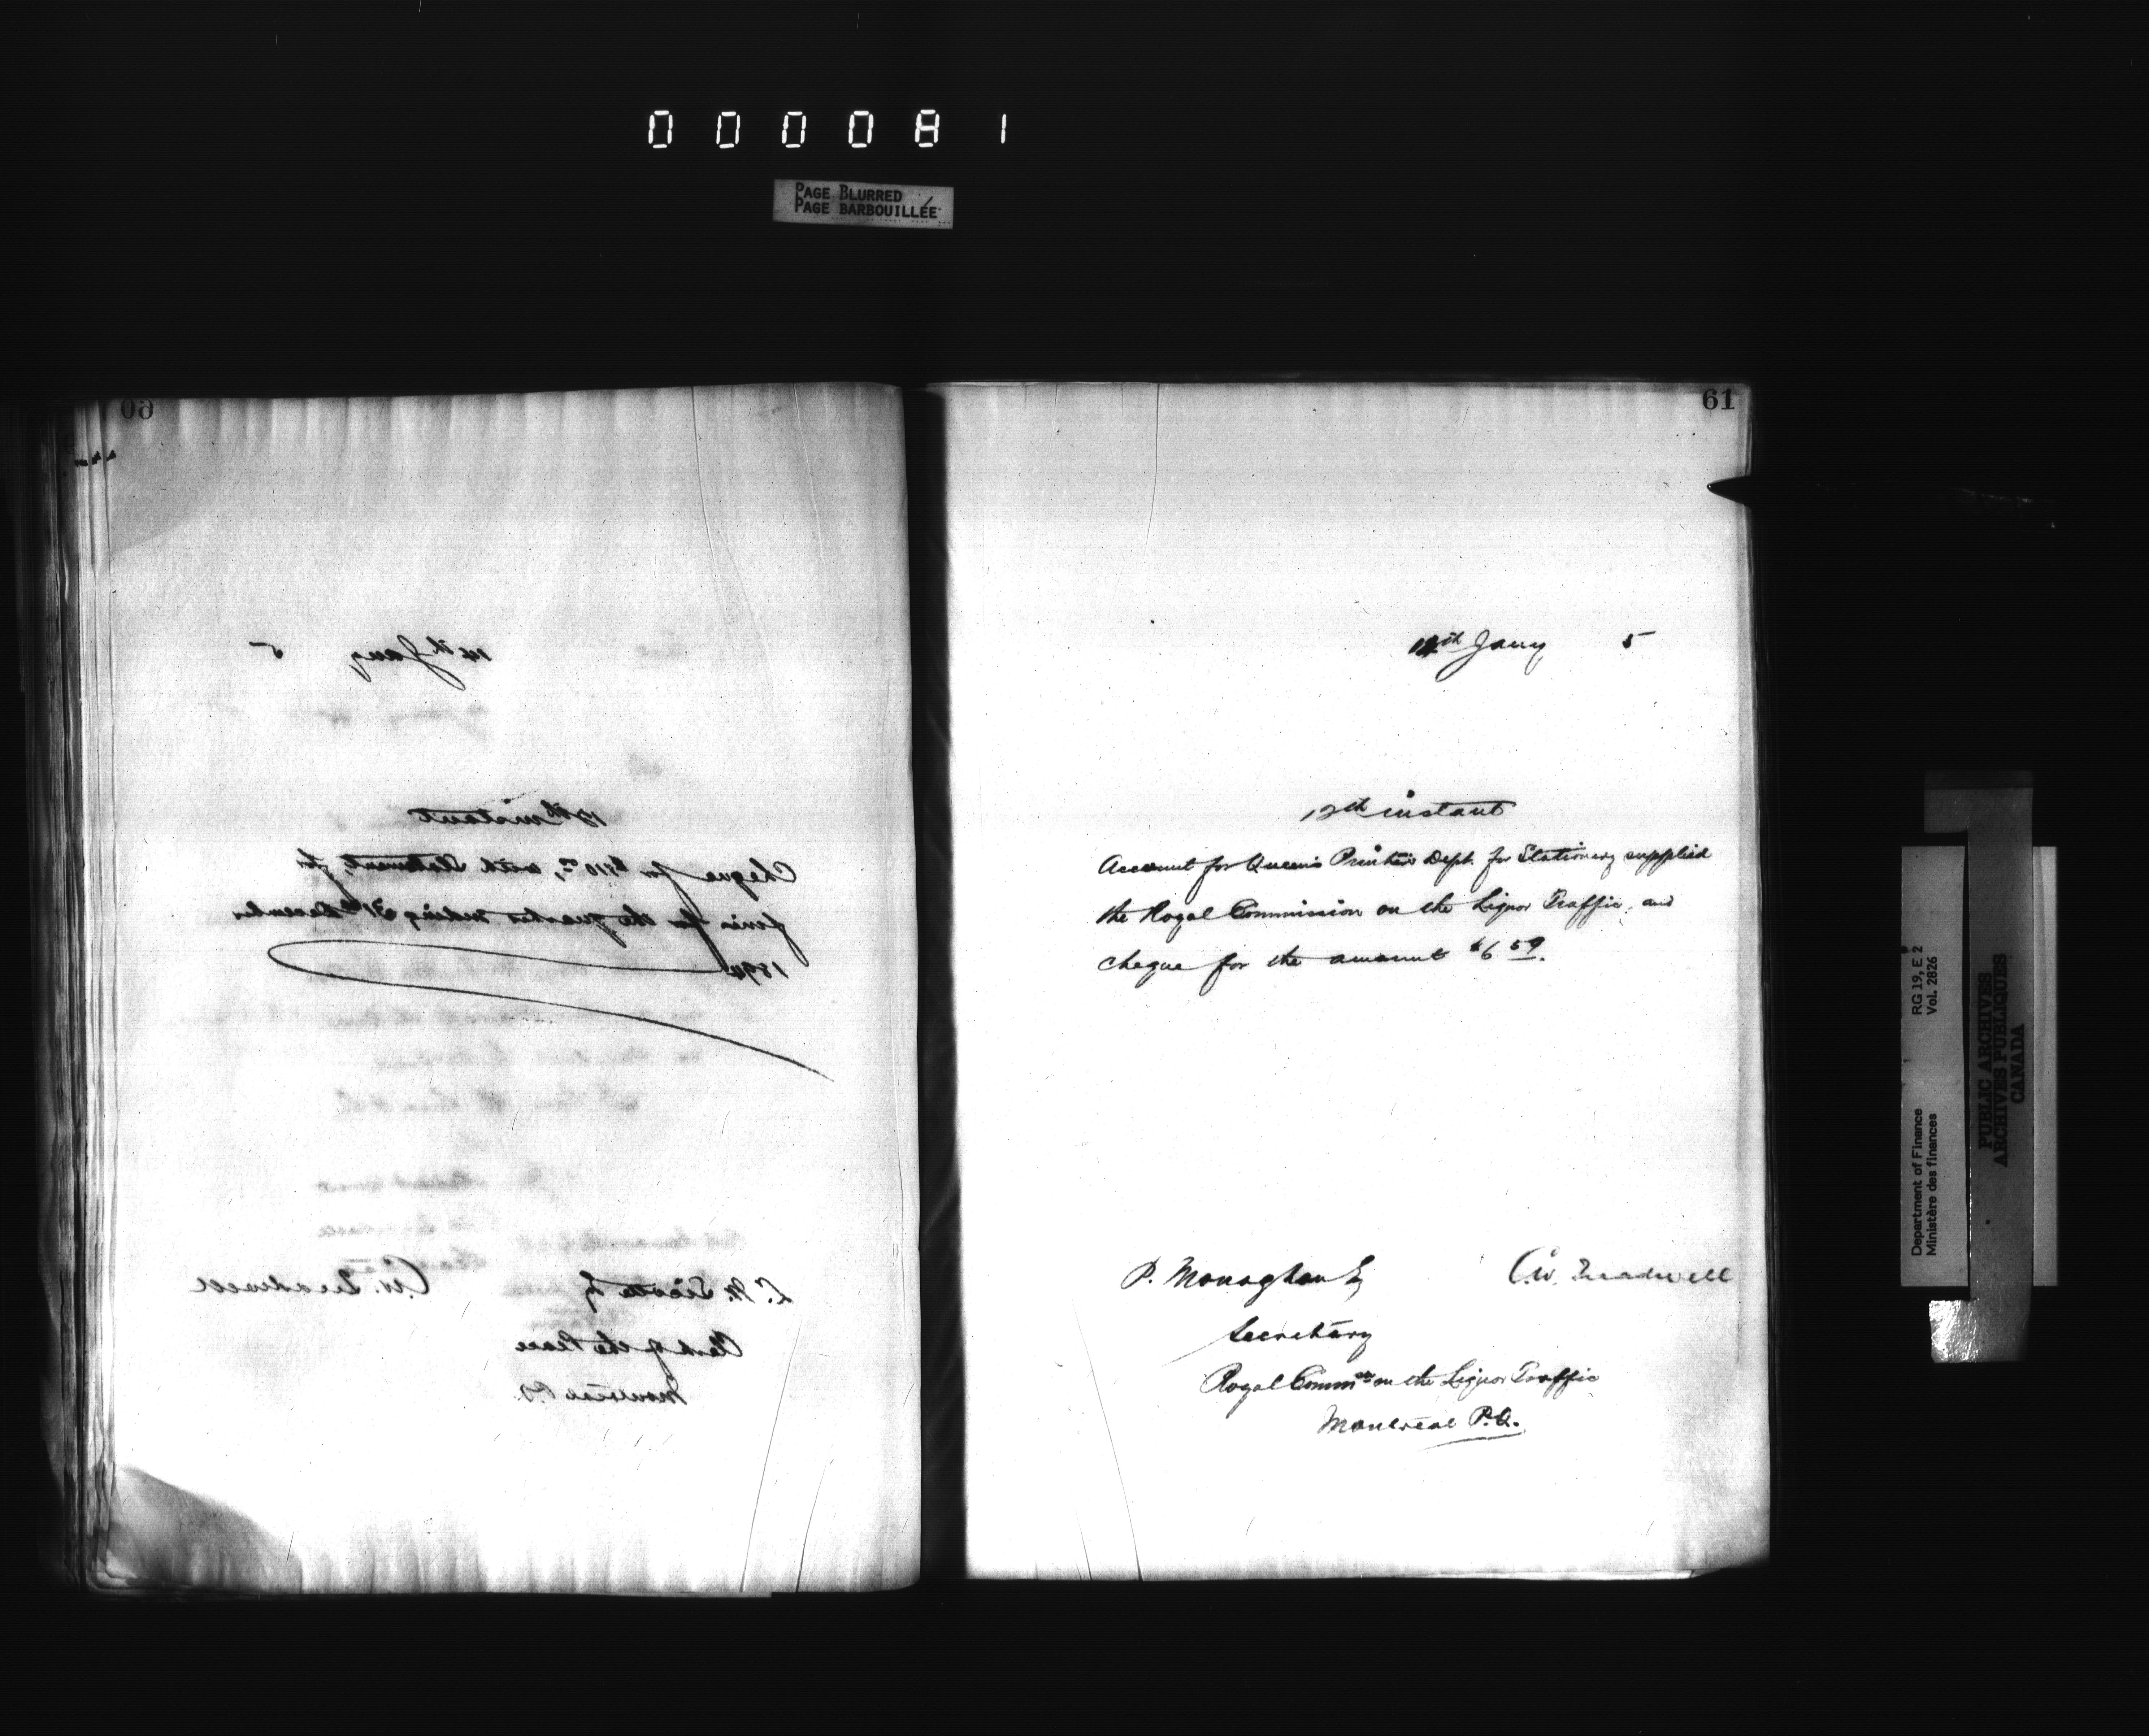 000081
PAGE BLURRED
PAGE BARBOUILLÉE
60
14th Jany 5
12th instant
Cheque for $110, with Statement, for
fines for the quarter ending 31st December
1894
C.W. Treadwell
L. W. Sicotte Esq
Clerk of the Peace
Montreal P.Q.
61
14th Jany 5
12th instant
Account for Queen's Printer's Dept. for Stationery supplied
the Royal Commission on the Liquor Traffic, and
cheque for the amount $6 59.
P. Monaghan Esq
C.W. Treadwell
Secretary
Royal Common on the Liquor Traffic
Montreal P.Q.
Department of Finance RG 19, E 2
Ministère des finances Vol. 2826
PUBLIC ARCHIVES
ARCHIVES PUBLIQUES
CANADA